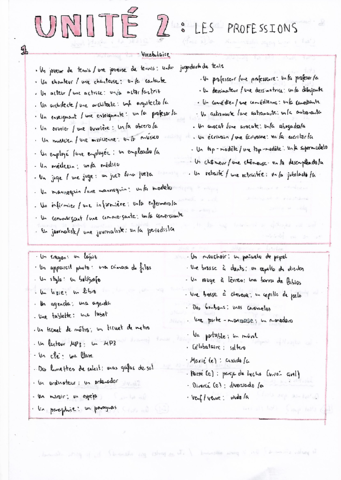 UNITÉ 2: LES PROFESSIONS
Vocabulaire
· Un joueur de tennis / une joueuse de tennis: un/a jugador/a de tenis
· Un chanteur / une chanteuse: un/a cantante
· Un acteur / une actrice: un/a actor/actriz
· Un architecte / une architecte: un/a arquitecto/a
· Un enseignant / une enseignante: un/a profesor/a
· Un ouvrier / une ouvrière: un/a obrero/a
· Un musicien / une musicienne: un/a músico
· Un employé / une employée: un empleado/a
· Un médecin: un/a médico
· Un juge / une juge: un juez / una jueza
· Un mannequin / une mannequin: un/a modelo
· Un infirmier / une infirmière: un/a enfermero/a
· Un commerçant / une commerçante: un/a comerciante
· Un journaliste / une journaliste: un/a periodista
· Un professeur / une professeure: un/a profesor/a
· Un dessinateur / une dessinatrice: un/a dibujante
· Un comédien / une comédienne: un/a comediante
· Un astronaute / une astronaute: un/a astronauta
· Un avocat / une avocate: un/a abogado/a
· Un écrivain / une écrivaine: un/a escritor/a
· Un top-modèle / une top-modèle: un/a supermodelo
· Un chômeur / une chômeuse: un/a desempleado/a
· Un retraité / une retraitée: un/a jubilado/a
· Un crayon: un lápiz
· Un appareil photo: una cámara de fotos
· Un stylo: un bolígrafo
· Un livre: un libro
· Un agenda: una agenda
· Une tablette: una tablet
· Un ticket de métro: un ticket de metro
· Un lecteur MP3: un MP3
· Un clé: una llave
· Des lunettes de soleil: unas gafas de sol
· Un ordinateur: un ordenador
· Un miroir: un espejo
· Un parapluie: un paraguas
· Un mouchoir: un pañuelo de papel
· Une brosse à dents: un cepillo de dientes
· Un rouge à lèvres: una barra de labios
· Une brosse à cheveux: un cepillo de pelo
· Des bonbons: unos caramelos
· Une porte-monnaie: un monedero
· Un portable: un móvil
· Célibataire: soltero
· Marié(e): casado/a
· Divorcé(e): divorciado/a
· Veuf/veuve: viudo/a